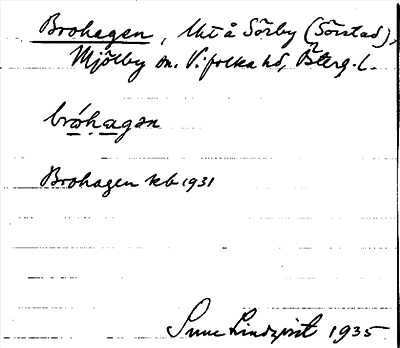 Brohagen, Ut å Sörby (Sörstad),
Mjölby sn. Vifolka hd, Österg. L.
bróhagən
Brohagen kb 1931
Sune Lindqvist 1935